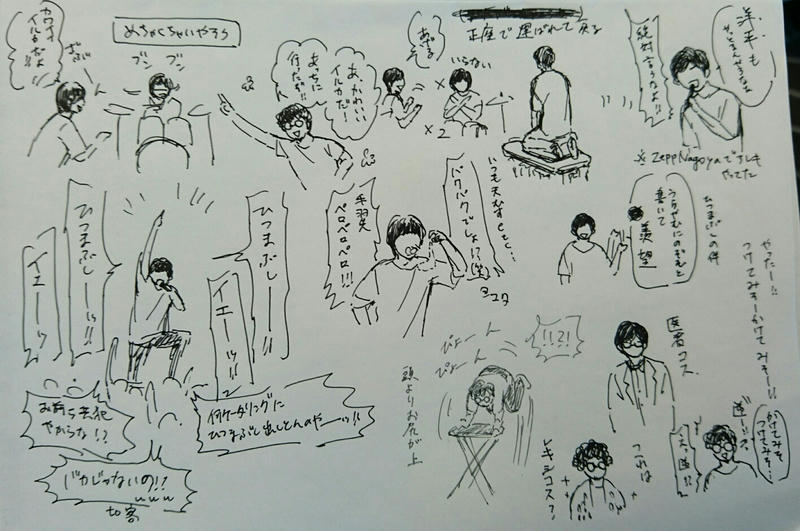 めちゃくちゃいやそう
ブン ブン
カワイイ
イルカだよ
あ、かわいい
イルカだ!
あっちに
行ったぞ!!
いらない
×2
正座で運ばれて
洋平も
絶対言うなよ!!
※ZeppNagoyaでオレも
やってた
ひつまぶしーッ!!
イエーッ!!
ひつまぶしーッ!!
イエーッ!!
お前ら共犯
やからな!?
バカじゃないの!!
www
to客
何ケータリングに
ひつまぶし出しとんのやーッ!!
いつも天むすとと…
バクバクでしょ!?(笑)
手羽先
ペロペロペロ!!!
ひつまぶしの件
うらやむにのぞむと
書いて
羨望
やったー!!
つけてみそーかけてみそー!!
ぴょーん
ぴょーん
!!?!
頭よりお尻が上
医者コス
これは
レキシコス?
かけてみそ
つけてみそー!
逆!!?